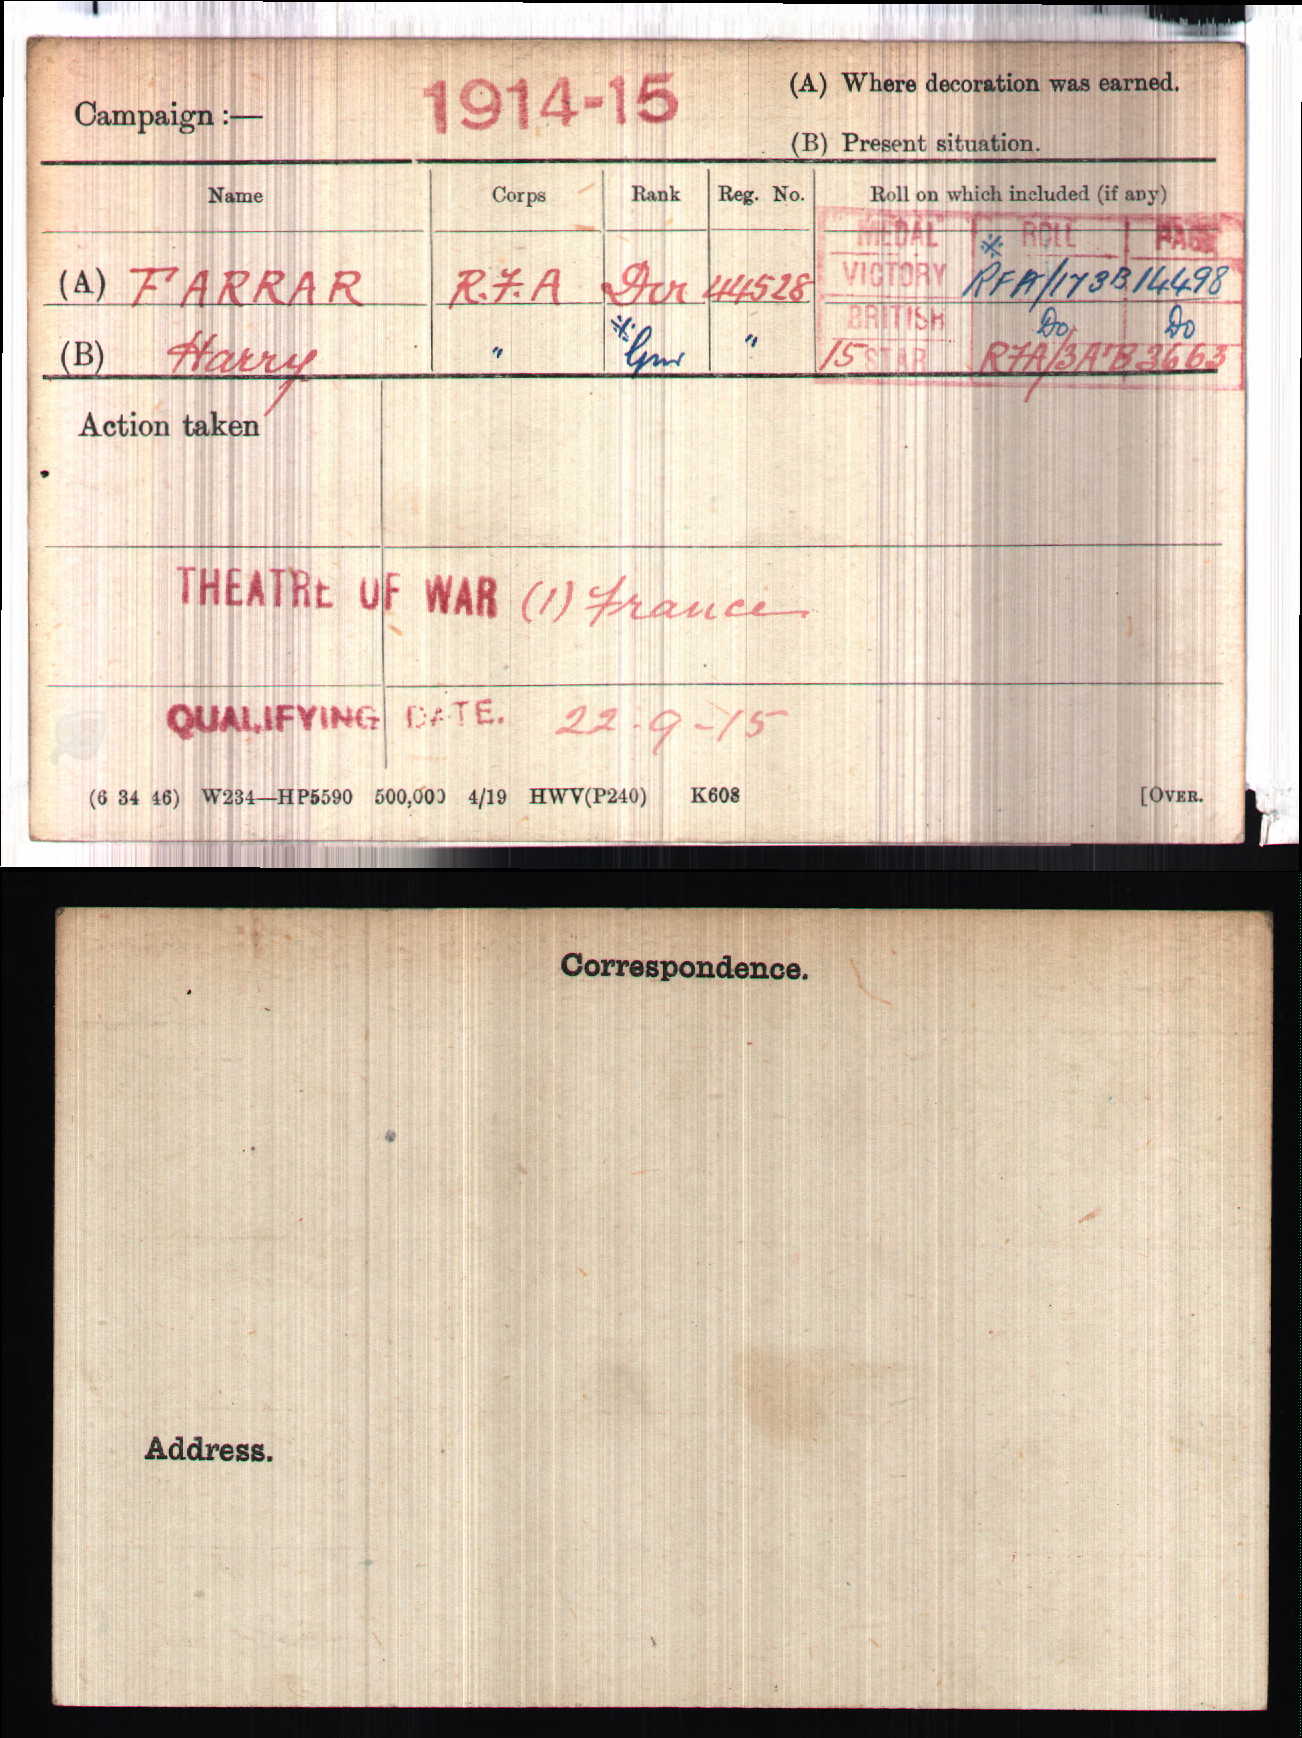 Campaign :— 1914-15
(A) Where decoration was earned.
(B) Present situation.
Name Corps Rank Reg. No. Roll on which included (if any)
MEDAL ※ ROLL PAGE
(A) FARRAR R.F.A Dvr 44528 VICTORY RFA/173B 14498
BRITISH Do Do
(B) Harry " ※ Gnr " 15 STAR RFA/3A"B 3663
Action taken
THEATRE OF WAR (1) France
QUALIFYING DATE. 22-9-15
(6 34 46) W234—HP5590 500,000 4/19 HWV(P240) K608 [OVER.
Correspondence.
Address.